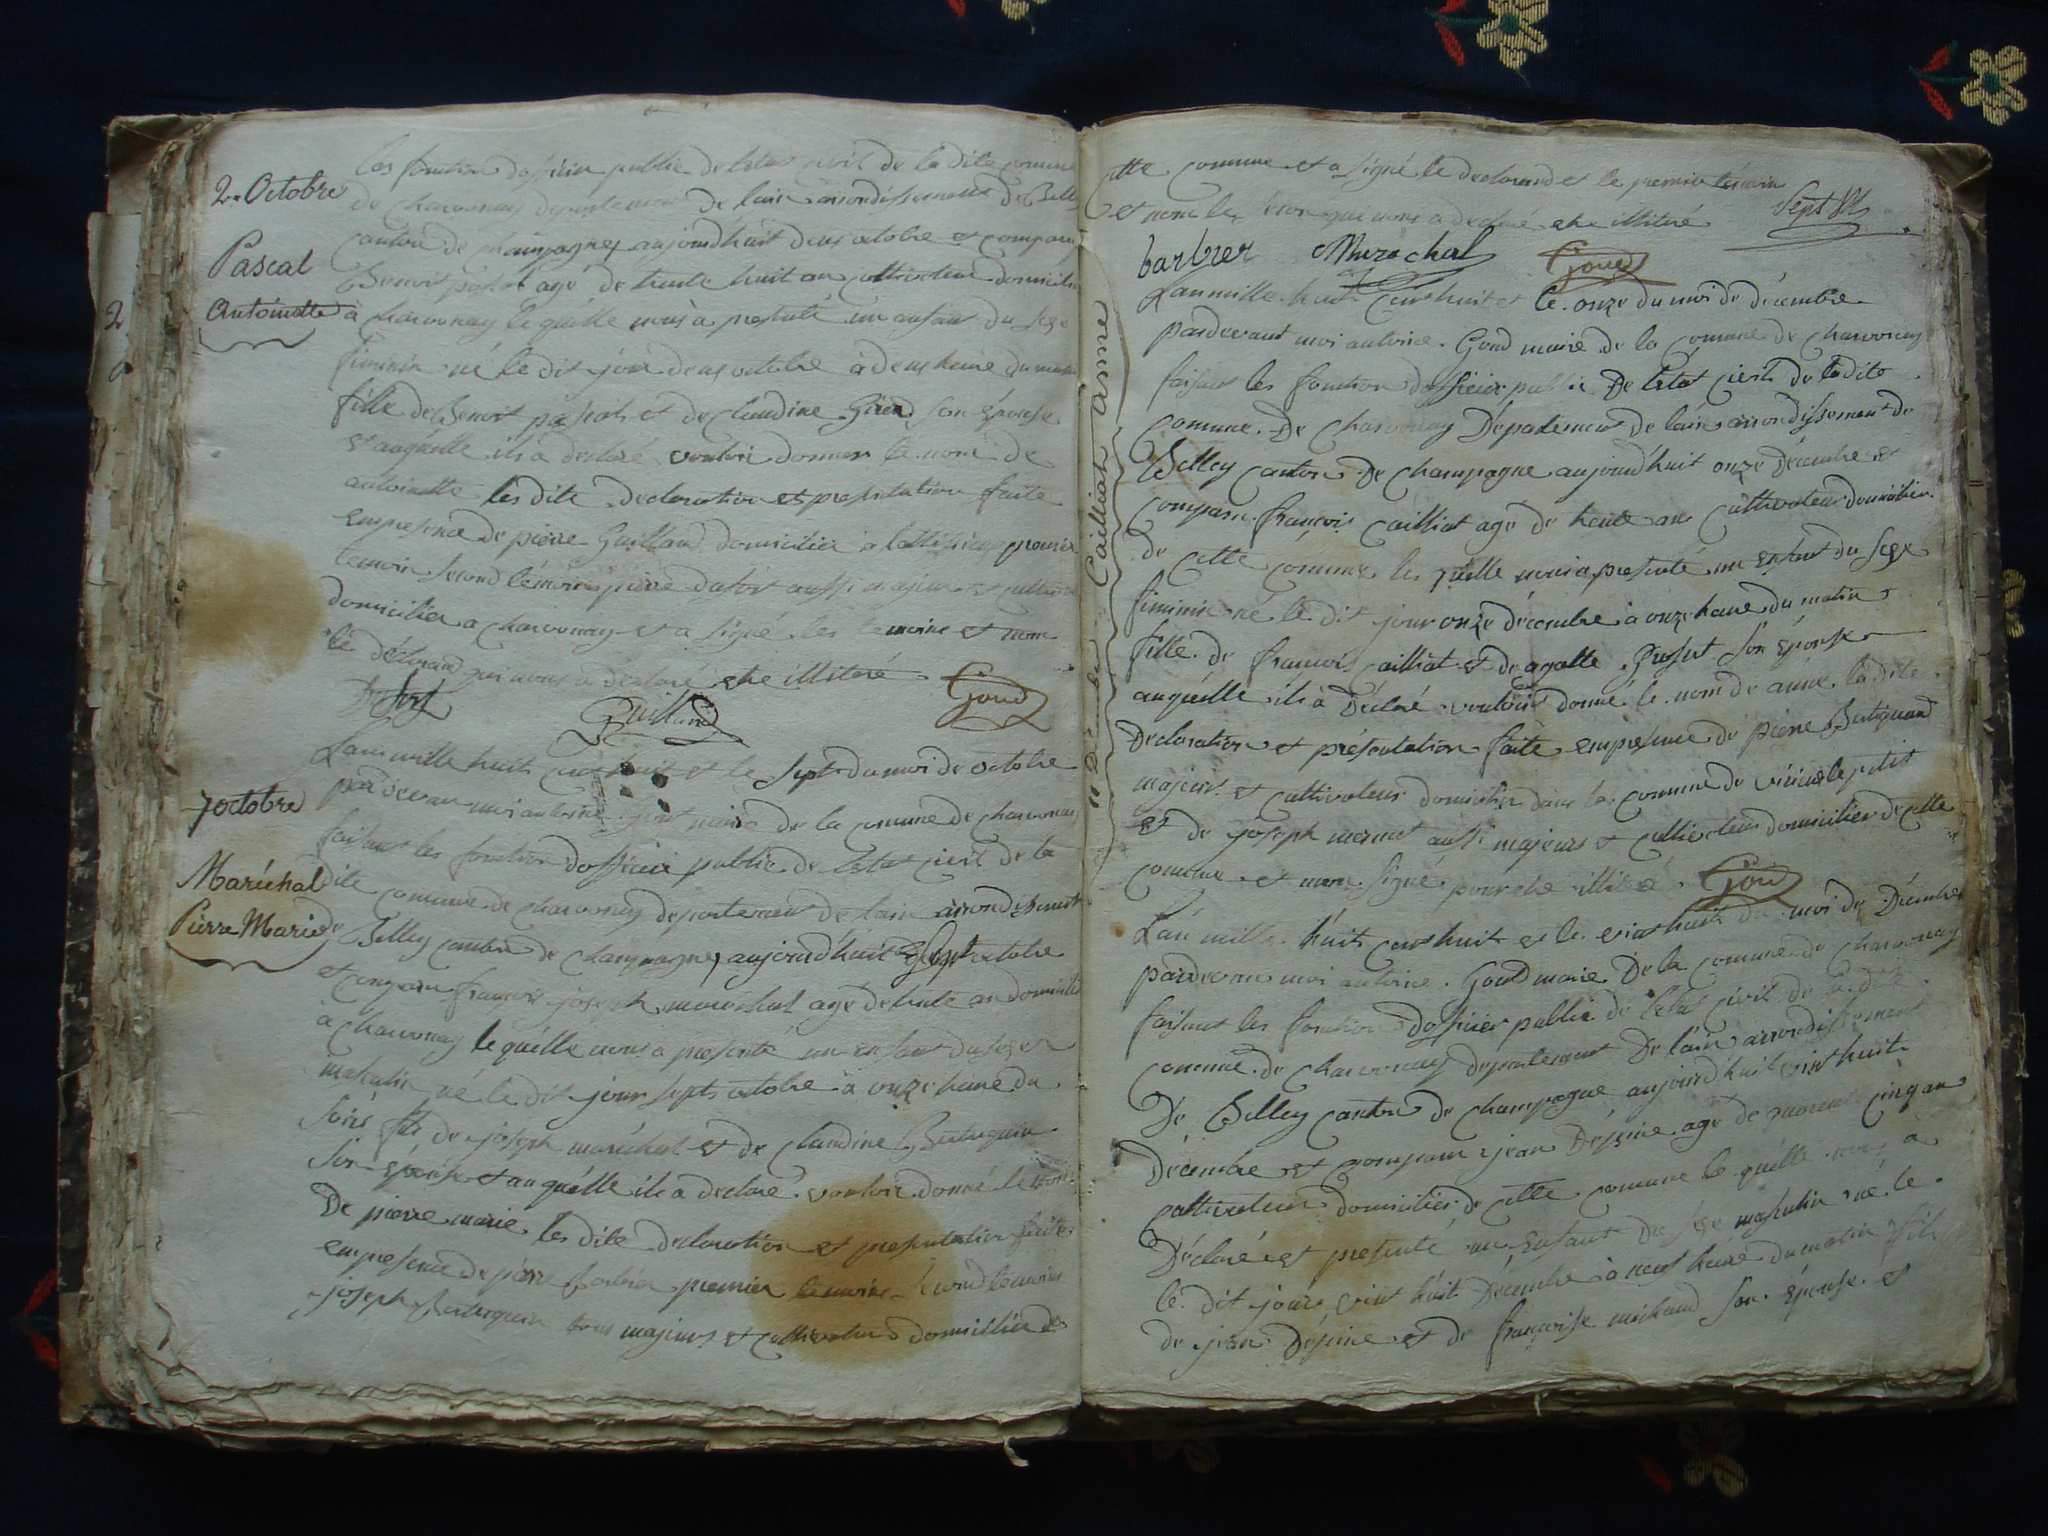 2. Octobre
Pascal
Antoinette
les fonction public de letat civil de la dite comune
de charvonay departement de lain arrondissement de Bell
canton de champagne aujourdhuit deux octobre et compar
Benoit agé de trente huit an cultivateur domicilié
à charvonay le quélle nous a presenté un enfant du sexe
feminin né le dit jour deux octobre à deux heure du matin
fille de Benoit et de claudine son épouse
et auquelle ils a declaré vouloir donner le nom de
antoinette les dite declaration et presentation faite
en presence de pierre Guilland domicilier à premier
temoin second témoins pierre dufort aussi majeur et
domicilier a charvonay et a signé les temoins et non
le déclarant que nous a déclaré etre illitéré
Guilland Goud
7 octobre
Maréchal
Pierre Marie
Lan mille huit cent huit et le sept du moi de octobre
pardevan moi antoine maire de la comune de charvonay
faisant les fonction dofficier public de letat civil de la
dite comune de charvonay departement de lain arrondissement
de Belley canton de champagne, aujourdhuit sept octobre
et compare francois joseph maréchal agé de trente an domicilié
à charvonay le quélle nous a presenté un enfant du sexe
masculin né le dit jour sept octobre à onze heure du
soire fils de joseph maréchal et de claudine
son épouse et au quélle ils a declaré vouloir donné le nom
De pierre marie les dite declaration et presentation faite
en presence de pierre barbier premier temoins second temoins
joseph tous majeurs et cultivateur domicilier de
cette comune et a signé le declarand et le premier temoin
et non le second que nous a declaré etre illitéré
barbier Marechal Goud
11 Décembre Cailliat Anne
Lan mille huit cent huit et le onze du moi de décembre
pardevant moi antoine Goud maire de la comune de charvonay
faisant les fonction dofficier public De letat civil de la dite
comune De charvonay Département de lain arrondissement de
Belley canton De champagne aujourdhuit onze décembre et
compare françois Cailliat agé de trente an cultivateur domicilier
de cette comune les quélle nous a presenté un enfant du sexe
feminin né le dit jour onze décembre à onze heure du matin
fille de françois cailliat et de agatte son épouse
auquélle ils à Déclaré vouloir donné le nom de anne la dite
Declaration et présentation faite en presence de pierre
majeur et cultivateur domicilier dans la comune de virieu le petit
Et de joseph mermet aussi majeurs et cultivateur domicilier de cette
comune et non signé pour etre illitéré Goud
Lan mille huit cent huit et le vint huit du moi de Décembre
pardevan moi antoine Goud maire De la comune de charvonay
faisant les fonction Dofficier public de letat civil de la dite
comune de charvonay departement De lain arrondissement
De Belley canton de champagne aujourdhuit vint huit
Décembre et compare jean agé de quarente cinq an
cultivateur domicilier de cette comune le quélle nous a
Déclaré et presenté un enfant du sexe masculin né le
le dit jour vint huit Décembre à neuf heure du matin fils
de jean et de françoise michaud son épouse et